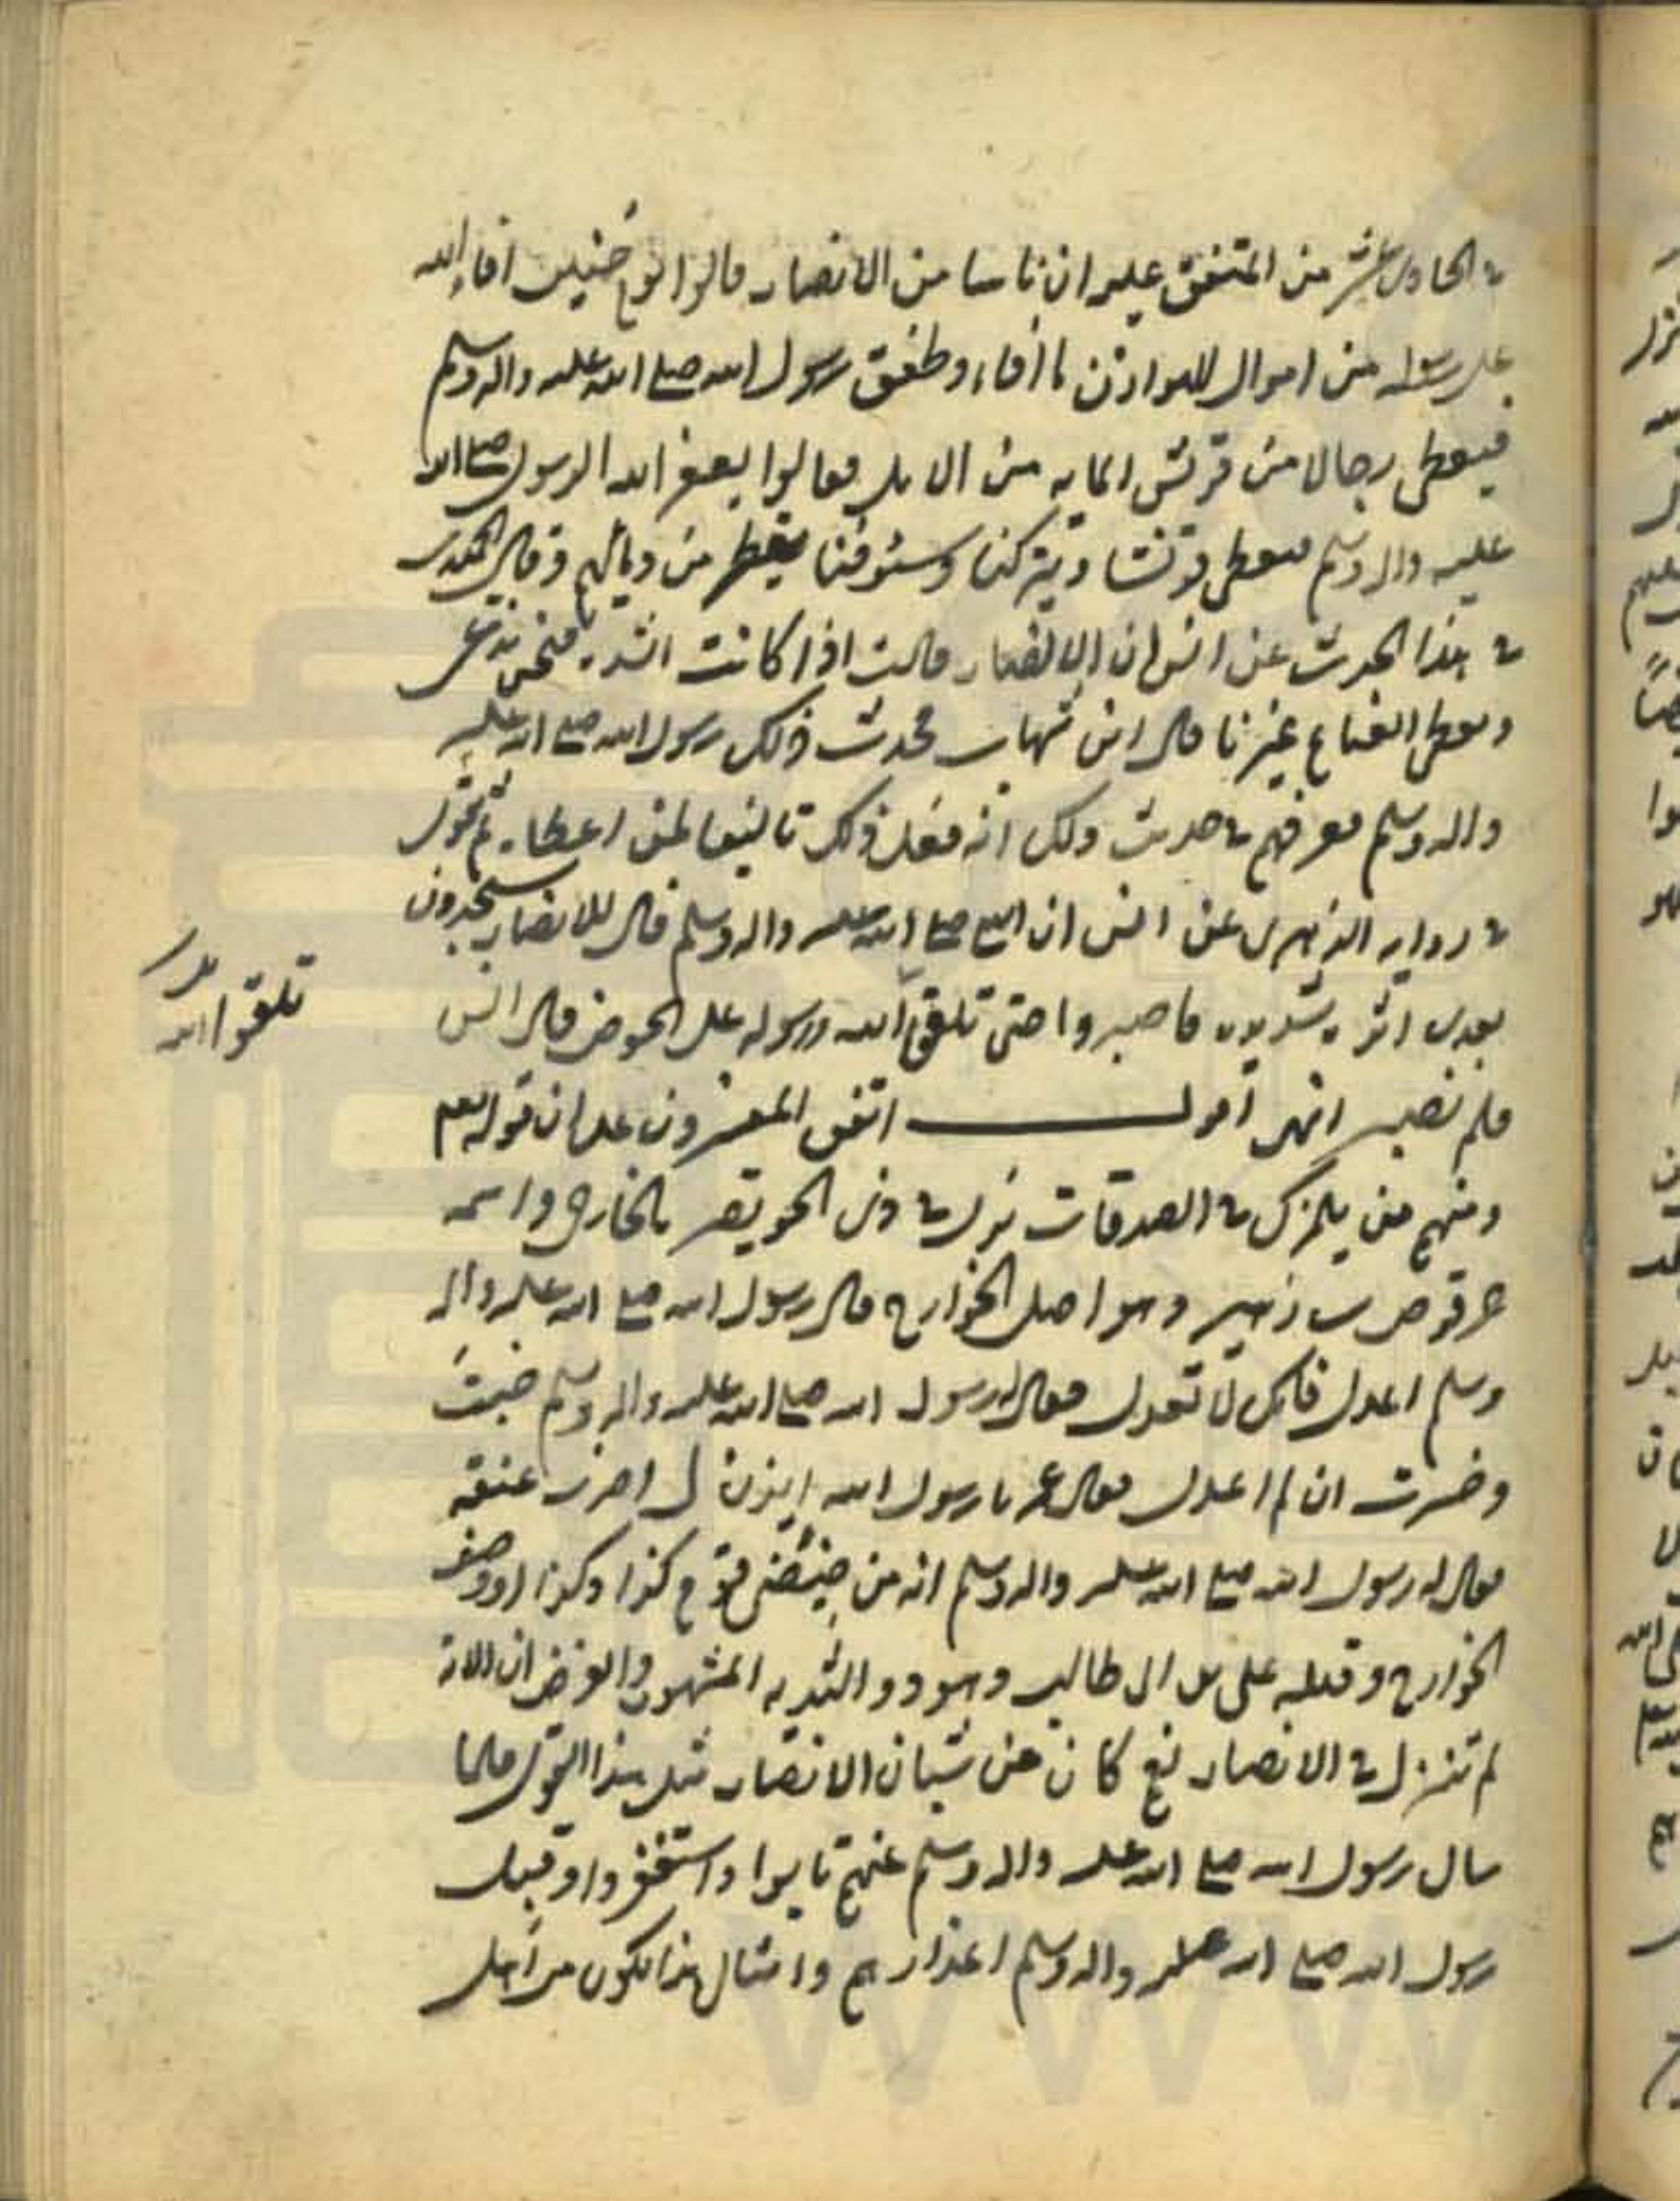 في الحادي عشر من المتفق عليه ان ناسا من الانصار قالوا يوم حنين افاء الله
على رسوله من اموال الهوازن ما افاء وطفق رسول الله صلى الله عليه واله وسلم
فيعطي رجالا من قريش الماية من الابل فقالوا يغفر الله الرسول صلى الله
عليه واله وسلم يعطي قريشا ويتركنا وسيوفنا يقطر من دمائهم وقال الحميدي
في هذا الحديث عن انس ان الانصار قالت اذا كانت الشدة فنحن ندعى
ويعطى الغنايم غيرنا قال ابن شهاب فحدث ذلك رسول الله صلى الله عليه
واله وسلم فعرفهم في حديث ذلك انه فعل ذلك تاليفا لمن اعطاه ثم يقول
في رواية الزهري عن انس ان النبي صلى الله عليه واله وسلم قال للانصار ستجدون
بعدي اثرة شديدة فاصبروا حتى تلقوا الله ورسوله على الحوض قال انس
تلقوا الله
فلم نصبر انتهى اقول اتفق المفسرون على ان قوله تعم
ومنهم من يلمزك في الصدقات نزل في ذي الخويصر الخارجي واسمه
حرقوص بن زهير وهو اصل الخوارج قال رسول الله صلى الله عليه واله
وسلم اعدل فانك لا تعدل فقال رسول الله صلى الله عليه واله وسلم خبت
وخسرت ان لم اعدل فقال عمر يا رسول الله ايذن لي اضرب عنقه
فقال له رسول الله صلى الله عليه واله وسلم انه من ضئضئ قوم كذا وكذا ووصف
الخوارج وقتله علي بن ابي طالب وهو ذو الثدية المشهور والغرض ان الاية
لم تنزل في الانصار نعم كان من شبان الانصار مثل هذا القول فلما
سال رسول الله صلى الله عليه واله وسلم عنهم تابوا واستغفروا وقبل
رسول الله صلى الله عليه واله وسلم اعذارهم وامثال هذا يكون من اجل